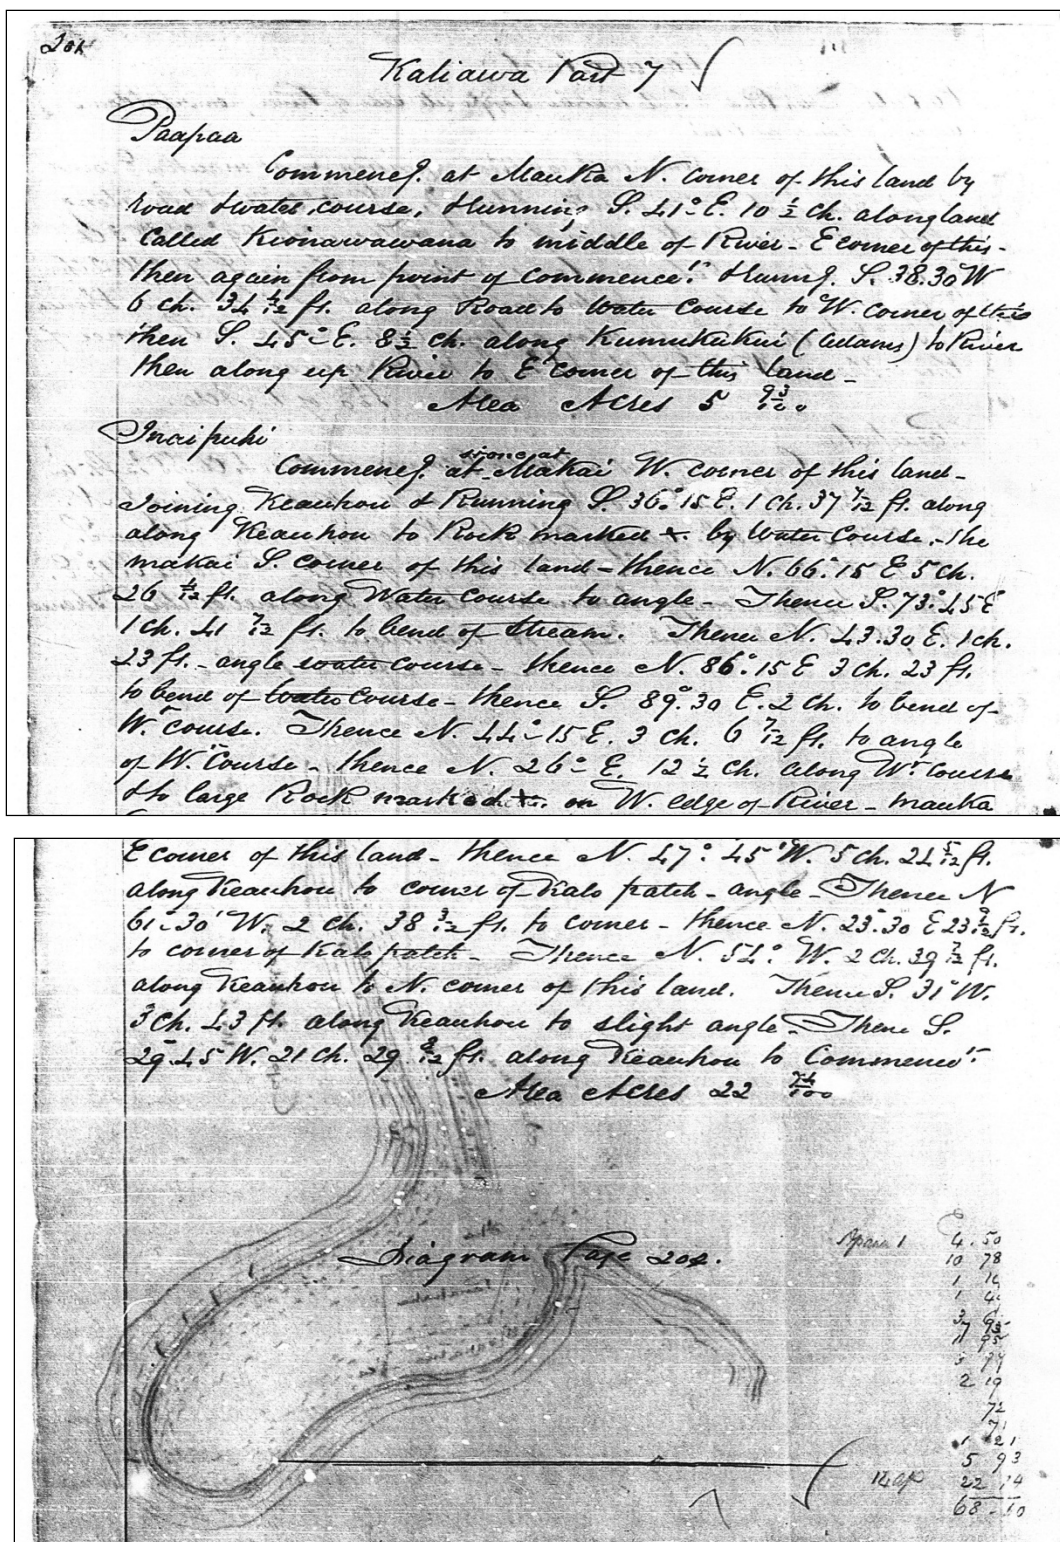 Kaliawa Part 7
Paapaa
Commencg. at Mauka N. corner of this land by
road & water course, & running S. 41° E. 10 ½ ch. along land
called Kionawawana to middle of River - E corner of this -
then again from point of commencet. & runng. S. 38.30 W
6 ch. 34 4/12 ft. along Road to Water Course to W. corner of this
then S. 45° E. 8 ½ ch. along Kumukukui (Adams) to River
then along up River to E corner of this land -
Area Acres 5 93/100
Inaipuhi
Commencg. at stone at Makai W. corner of this land -
Joining Keauhou & Running S. 36°.15 E. 1 ch. 37 7/12 ft. along
along Keauhou to Rock marked +. by Water Course, the
makai S. corner of this land - thence N. 66°.15 E 5 ch.
26 4/12 ft. along Water course to angle - Thence S. 73°.45 E
1 ch. 41 7/12 ft. to bend of stream. Thence N. 43.30 E. 1 ch.
23 ft. - angle water course - thence N. 86°.15 E 3 ch. 23 ft.
to bend of Water Course - thence S. 89°.30 E. 2 ch. to bend of
Wr. course. Thence N. 44°-15 E. 3 ch. 6 7/12 ft. to angle
of Wr. Course - thence N. 26° E. 12 ½ ch. along Wr. Course
& to large Rock marked +. on W. edge of River - mauka
E corner of this land - thence N. 47°. 45' W. 5 ch. 24 5/12 ft.
along Keauhou to corner of Kalo patch - angle - Thence N
61°-30' W. 2 ch. 38 3/12 ft. to corner - thence N. 23°.30 E 23 9/12 ft.
to corner of Kalo patch - Thence N. 54° W. 2 ch. 39 7/12 ft.
along Keauhou to N. corner of this land. Thence S. 31° W.
3 ch. 43 ft. along Keauhou to slight angle - Thence S.
29°.45 W. 21 ch. 29 8/12 ft. along Keauhou to Commencet.
Area Acres 22 74/100
Diagram Page 202.
Apana 1 4.50
10 78
2 19
72
1 21
5 93
14 ap 22 14
68.60